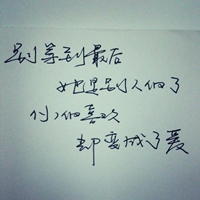 别等到最后
她已是别人的了
你的喜欢
却变成了爱